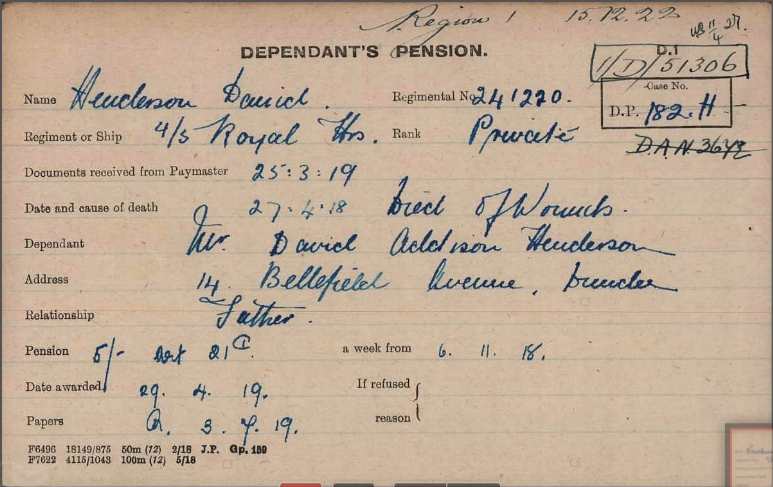 Region 1 15.12.22
DEPENDANT'S PENSION.
D.1
1/D/51306
Name Henderson David. Regimental No 241220.
Case No.
D.P. 182.H
Regiment or Ship 4/5 Royal Hrs. Rank Private
Documents received from Paymaster 25:3:19
Date and cause of death 27.4.18 Died of Wounds.
Dependant Mr. David Addison Henderson
Address 14. Bellefield Avenue, Dundee
Relationship Father.
Pension 5/- Art 21 a week from 6. 11. 18.
Date awarded 29. 4. 19. If refused
reason
Papers 3. 7. 19.
F6496 18149/875 50m (12) 2/18 J.P. Gp. 159
F7622 4115/1043 100m (12) 5/18